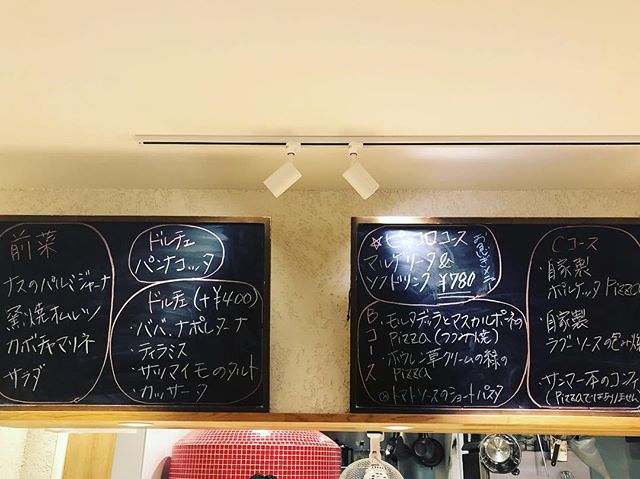 前菜
ナスのパルミジャーナ
窯焼オムレツ
カボチャマリネ
サラダ
ドルチェ
パンナコッタ
ドルチェ(+¥400)
・ババ.ナポレターナ
・ティラミス
・サツマイモのタルト
・カッサータ
☆ピッコロコース
マルゲリータ&
ソフトドリンク ¥780
Bコース
・モルタデッラとマスカルポネの
Pizza(フタ焼)
・ホウレン草クリームの緑の
Pizza
トマトソースのショートパスタ
Cコース
・自家製
ポルケッタ Pizza
・自家製
ラグソースの包み焼
・サンマ一本のコンフィ
(Pizzaではありません)